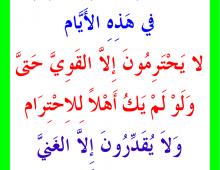 في هَذِهِ الأَيَّام
لا يَحْتَرِمُونَ إِلاَّ القَوِيَّ حَتىَّ
وَلَوْ لَمْ يَكُ أَهْلاً لِلاِحْتِرَام
وَلاَ يُقدِّرُونَ إِلاَّ الغَنيَّ